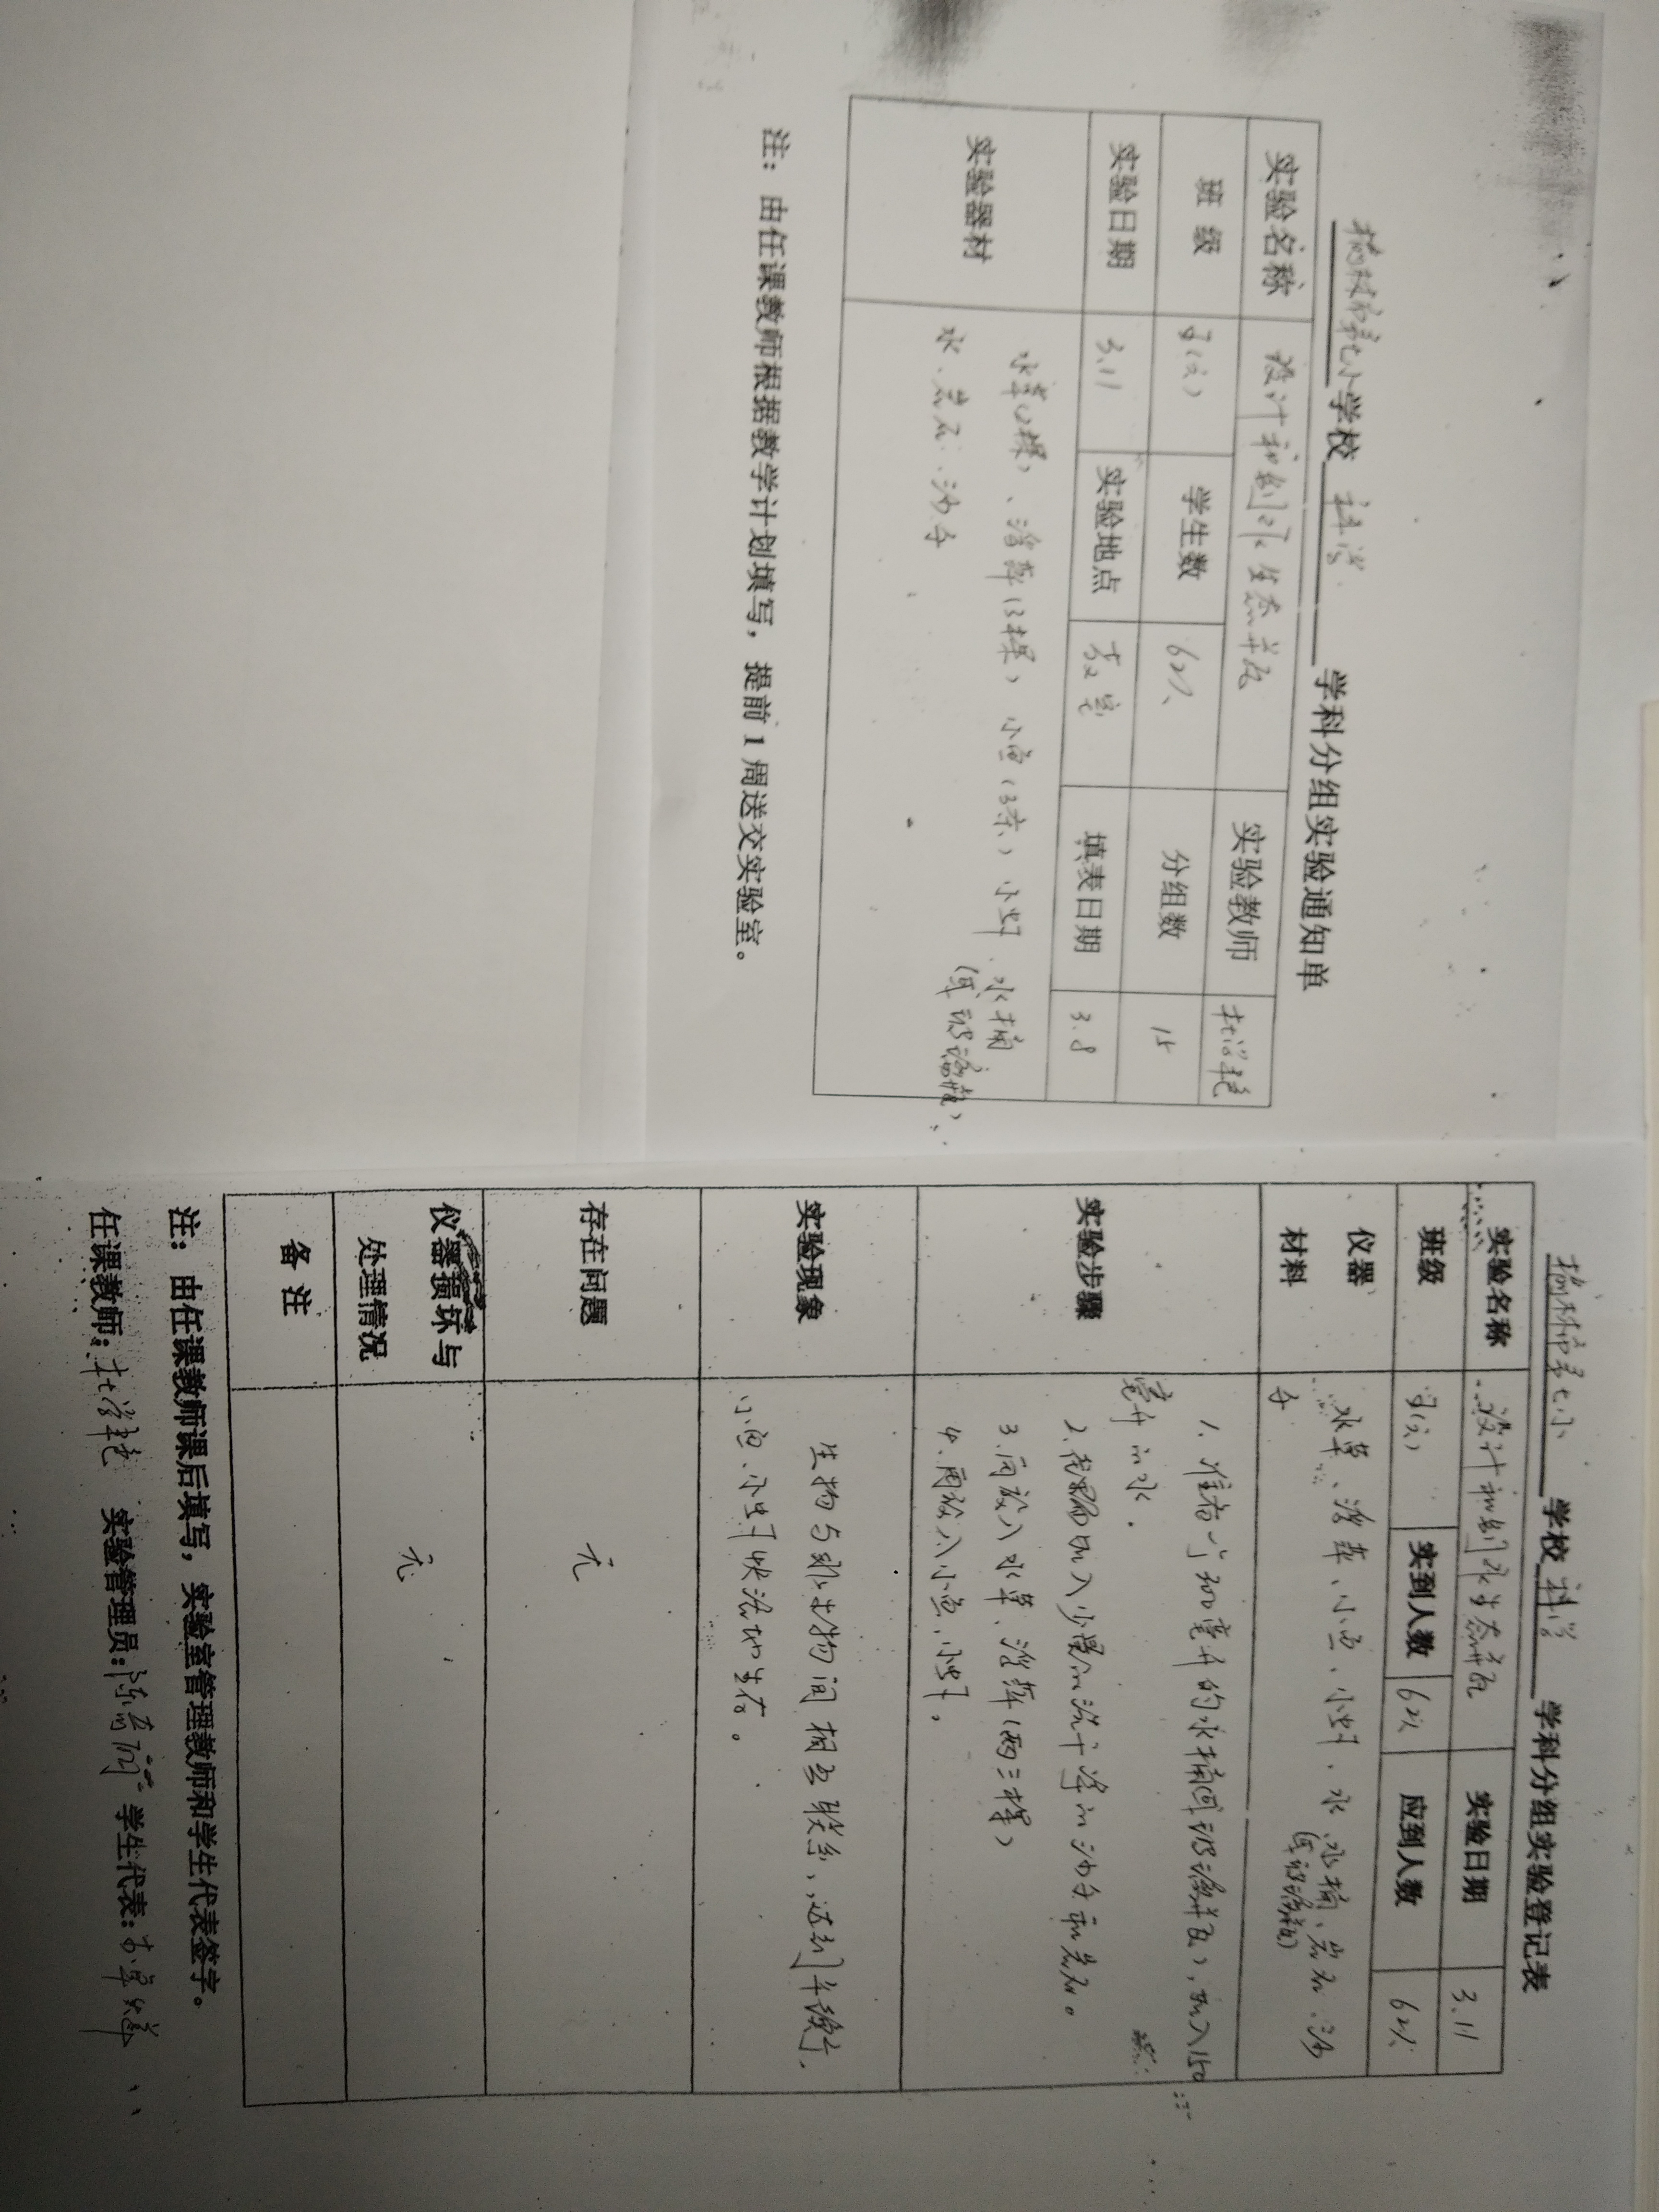 榆林市第七小学校 科学 学科分组实验通知单
实验名称 设计和制作生态瓶 实验教师 杜学艳
班 级 五(六) 学生数 62人 分组数 15
实验日期 3.11 实验地点 教室 填表日期 3.8
实验器材
水草(2棵)、浮萍(3棵)小鱼(3条)小虾、水桶
(或玻璃瓶)、
水、岩石、沙子
注：由任课教师根据教学计划填写，提前1周送交实验室。
榆林市第七小 学校 科学 学科分组实验登记表
实验名称 设计和制作生态瓶 实验日期 3.11
班级 五(六) 实到人数 62人 应到人数 62人
仪器
材料
水草、浮萍、小鱼、小虾、水、水桶、岩石、沙
(或玻璃瓶)
子
实验步骤
1、准备一个300毫升的水桶(或玻璃瓶)，加入150
毫升的水。
2、在里面加入少量的洗干净的沙子和岩石。
3、再放入水草、浮萍(两三棵)
4、再放入小鱼、小虾。
实验现象
生物与非生物间相互联系，达到平衡，
小鱼、小虾快活地生存。
存在问题 无
仪器损坏与
处理情况
无
备 注
注：由任课教师课后填写，实验室管理教师和学生代表签字。
任课教师：杜学艳 实验管理员： 学生代表：